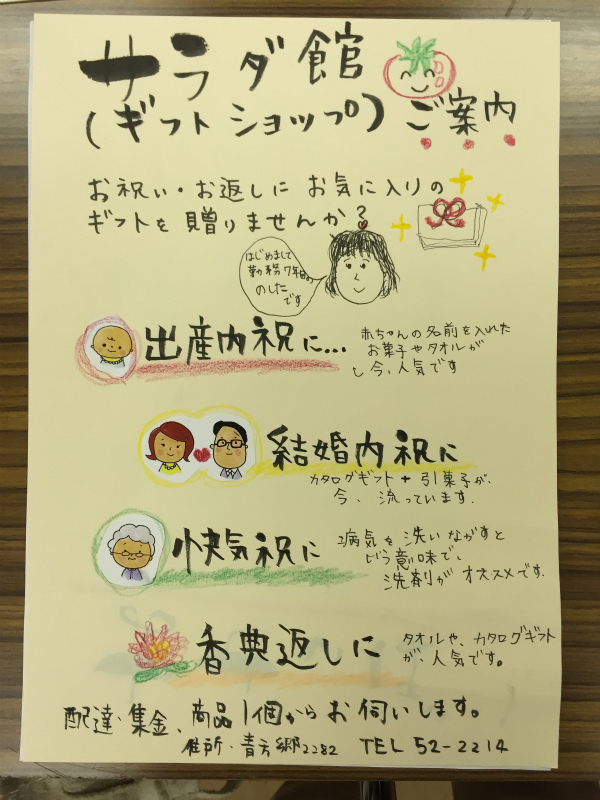 サラダ館
(ギフトショップ)ご案内
お祝い・お返しに お気に入りの
ギフトを贈りませんか?
はじめまして
勤務7年目の
のした
です
出産内祝に…
赤ちゃんの名前を入れた
お菓子やタオルが
今、人気です
結婚内祝に
カタログギフト+引菓子が、
今、流っています.
快気祝に
病気を洗いながすと
どう意味で、
洗剤がオススメです.
香典返しに
タオルや、カタログギフト
が、人気です。
配達・集金、商品1個からお伺いします。
住所・青方郷2282 TEL 52-2214